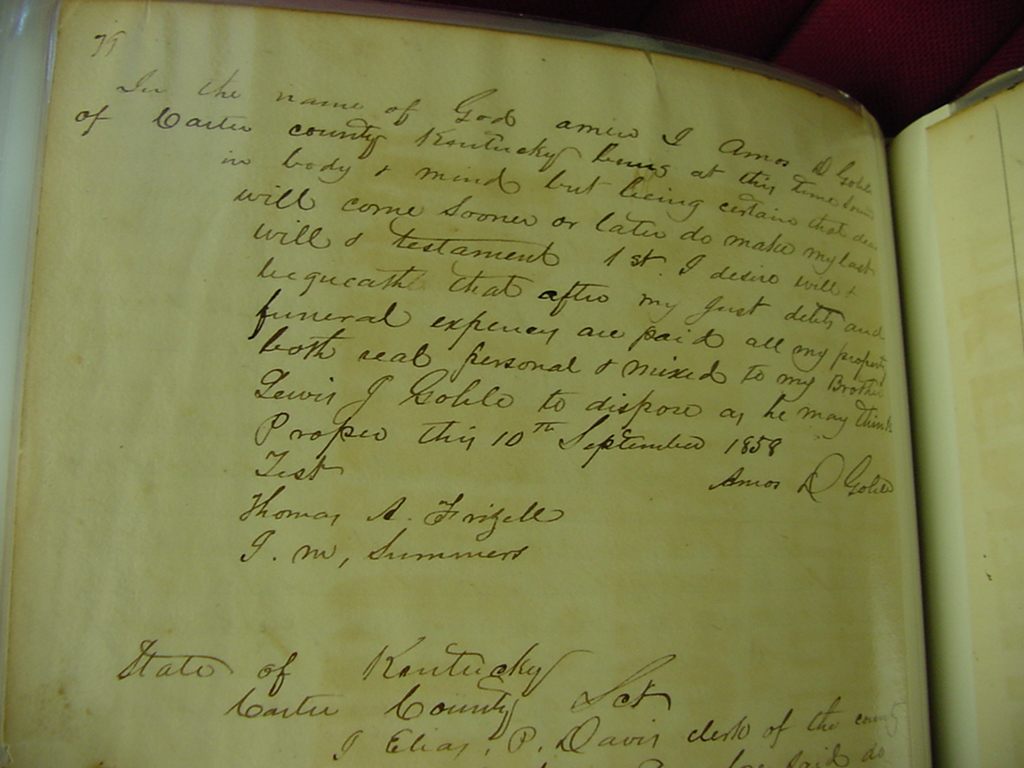 In the name of God amen I Amos D Goble
of Carter county Kentucky being at this time
in body & mind but being certain that
will come Sooner or later do make my last
will & testament 1st. I desire will &
bequeath that after my just debts and
funeral expences are paid all my property
both real personal & mixed to my Brother
Lewis J Goble to dispose as he may think
Proper this 10th September 1858
Test Amos D Goble
Thomas A. Frizell
J. M, Summers
State of Kentucky
Carter County Sct
I Elias, P. Davis clerk of the county
said do